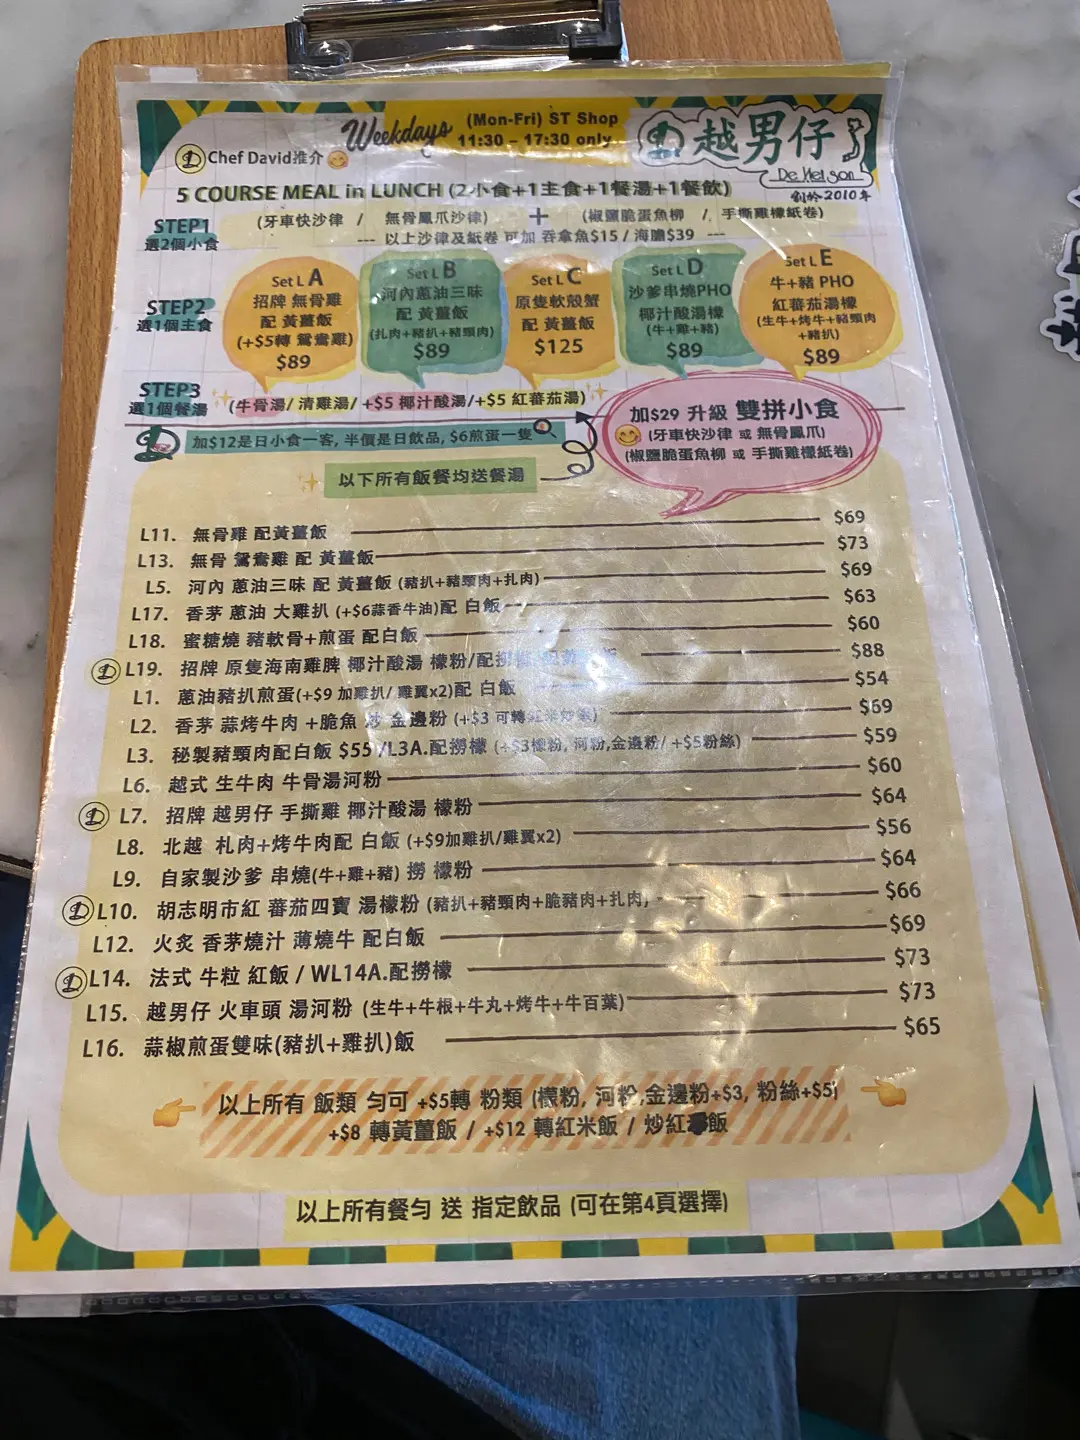 Weekdays (Mon-Fri) ST Shop
11:30 – 17:30 only
越男仔
De Melson
創於2010年
Chef David推介
5 COURSE MEAL in LUNCH (2小食+1主食+1餐湯+1餐飲)
STEP1
選2個小食
(牙車快沙律 / 無骨鳳爪沙律) + (椒鹽脆蛋魚柳 / 手撕雞檬紙卷)
--- 以上沙律及紙卷 可加 吞拿魚$15 / 海膽$39 ---
STEP2
選1個主食
Set L A
招牌 無骨雞
配 黃薑飯
(+$5轉 鴛鴦雞)
$89
Set L B
河內蔥油三味
配 黃薑飯
(扎肉+豬扒+豬頸肉)
$89
Set L C
原隻軟殼蟹
配 黃薑飯
$125
Set L D
沙爹串燒PHO
椰汁酸湯檬
(牛+雞+豬)
$89
Set L E
牛+豬 PHO
紅蕃茄湯檬
(生牛+烤牛+豬頸肉
+豬扒)
$89
STEP3
選1個餐湯
(牛骨湯/ 清雞湯/ +$5 椰汁酸湯/+$5 紅蕃茄湯)
加$12是日小食一客, 半價是日飲品, $6煎蛋一隻
加$29 升級 雙拼小食
(牙車快沙律 或 無骨鳳爪)
(椒鹽脆蛋魚柳 或 手撕雞檬紙卷)
以下所有飯餐均送餐湯
L11. 無骨雞 配黃薑飯 $69
L13. 無骨 鴛鴦雞 配 黃薑飯 $73
L5. 河內 蔥油三味 配 黃薑飯 (豬扒+豬頸肉+扎肉) $69
L17. 香茅 蔥油 大雞扒 (+$6蒜香牛油)配 白飯 $63
L18. 蜜糖燒 豬軟骨+煎蛋 配白飯 $60
L19. 招牌 原隻海南雞脾 椰汁酸湯 檬粉/配撈 $88
L1. 蔥油豬扒煎蛋(+$9 加雞扒/ 雞翼x2)配 白飯 $54
L2. 香茅 蒜烤牛肉 +脆魚 炒 金邊粉 (+$3 可轉紅米炒飯) $69
L3. 秘製豬頸肉配白飯 $55 /L3A.配撈檬 (+$3檬粉, 河粉,金邊粉/ +$5粉絲) $59
L6. 越式 生牛肉 牛骨湯河粉 $60
L7. 招牌 越男仔 手撕雞 椰汁酸湯 檬粉 $64
L8. 北越 札肉+烤牛肉配 白飯 (+$9加雞扒/雞翼x2) $56
L9. 自家製沙爹 串燒(牛+雞+豬) 撈 檬粉 $64
L10. 胡志明市紅 蕃茄四寶 湯檬粉 (豬扒+豬頸肉+脆豬肉+扎肉) $66
L12. 火炙 香茅燒汁 薄燒牛 配白飯 $69
L14. 法式 牛粒 紅飯 / WL14A.配撈檬 $73
L15. 越男仔 火車頭 湯河粉 (生牛+牛根+牛丸+烤牛+牛百葉) $73
L16. 蒜椒煎蛋雙味(豬扒+雞扒)飯 $65
以上所有 飯類 勻可 +$5轉 粉類 (檬粉, 河粉,金邊粉+$3, 粉絲+$5)
+$8 轉黃薑飯 / +$12 轉紅米飯 / 炒紅飯
以上所有餐勻 送 指定飲品 (可在第4頁選擇)